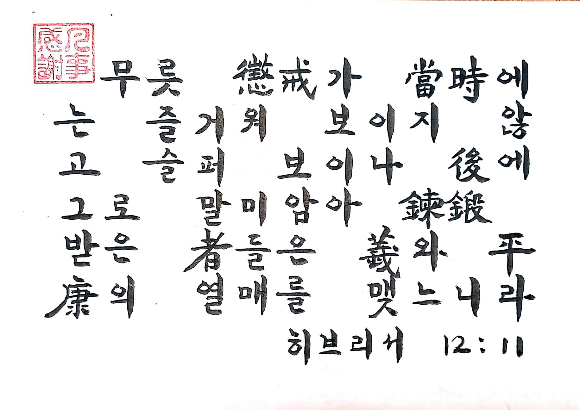 凡事
感謝
무릇 懲戒가 當時에
는 즐거워 보이지 않
고 슬퍼 보이나 後에
그로 말미암아 鍊鍛
받은 者들은 義와 平
康의 열매를 맺느니라
히브리서 12:11